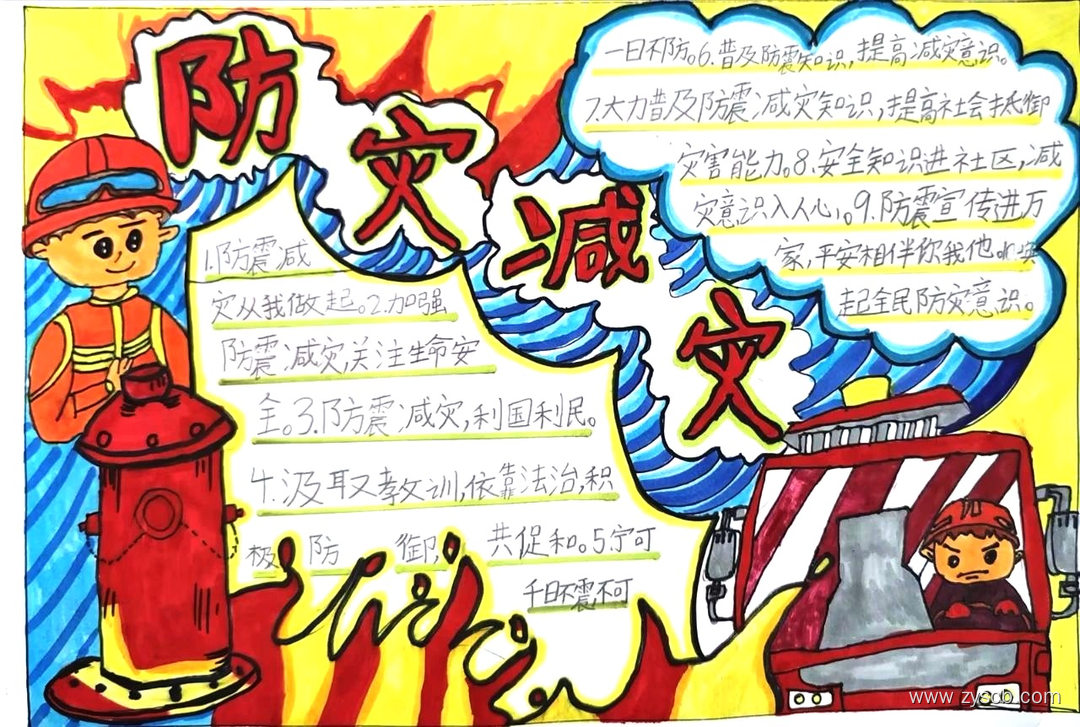 防
灾
减
灾
1.防震减
灾从我做起。2.加强
防震减灾,关注生命安
全。3.防震减灾,利国利民。
4.汲取教训,依靠法治,积
极防御,共促和。5宁可
千日不震,不可
一日不防。6.普及防震知识,提高减灾意识。
7.大力普及防震减灾知识,提高社会抵御
灾害能力。8.安全知识进社区,减
灾意识入人心。9.防震宣传进万
家,平安相伴你我他
起全民防灾意识。
www.zyscb.com